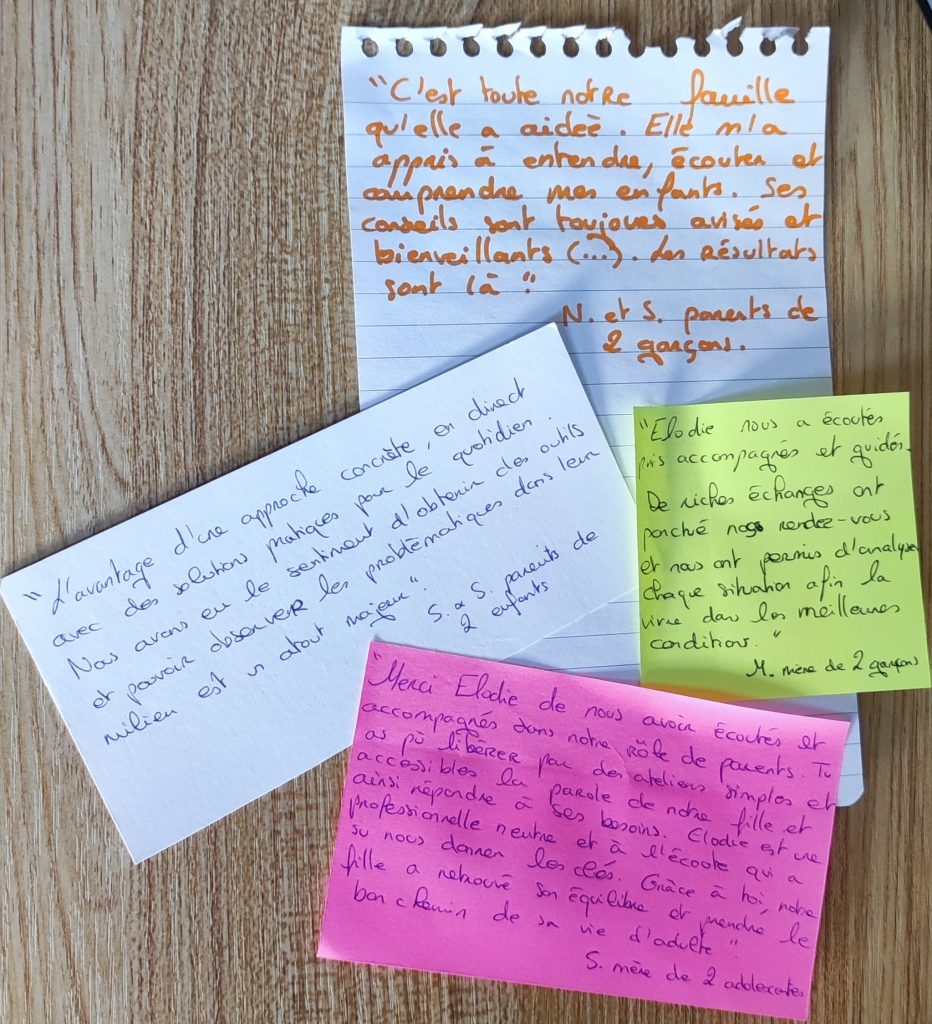 "C'est toute notre famille
qu'elle a aideè. Elle m'a
appris à entendre, écouter et
comprendre mes enfants. Ses
conseils sont toujours avisés et
bienveillants (...). Les Résultats
sont là"
N. et S. parents de
2 garçons.
"L'avantage d'une approche concrète, en direct
avec des solutions pratiques pour le quotidien.
Nous avons eu le sentiment d'obtenir des outils
et pouvoir observer les problématiques dans leur
milieu est un atout majeur"
S. & S. parents de
2 enfants
"Elodie nous a écoutés
puis accompagnés et guidés.
De riches échanges ont
ponctué nos rendez-vous
et nous ont permis d'analyser
chaque situation afin la
vivre dans les meilleures
conditions."
M. mère de 2 garçons
"Merci Elodie de nous avoir écoutés et
accompagnés dans notre rôle de parents. Tu
as pû libérer par des ateliers simples et
accessibles la parole de notre fille et
ainsi répondre à ses besoins. Elodie est une
professionnelle neutre et à l'écoute qui a
su nous donner les clés. Grâce à toi, notre
fille a retrouvé son équilibre et prendre le
bon chemin de sa vie d'adulte"
S. mère de 2 adolescentes